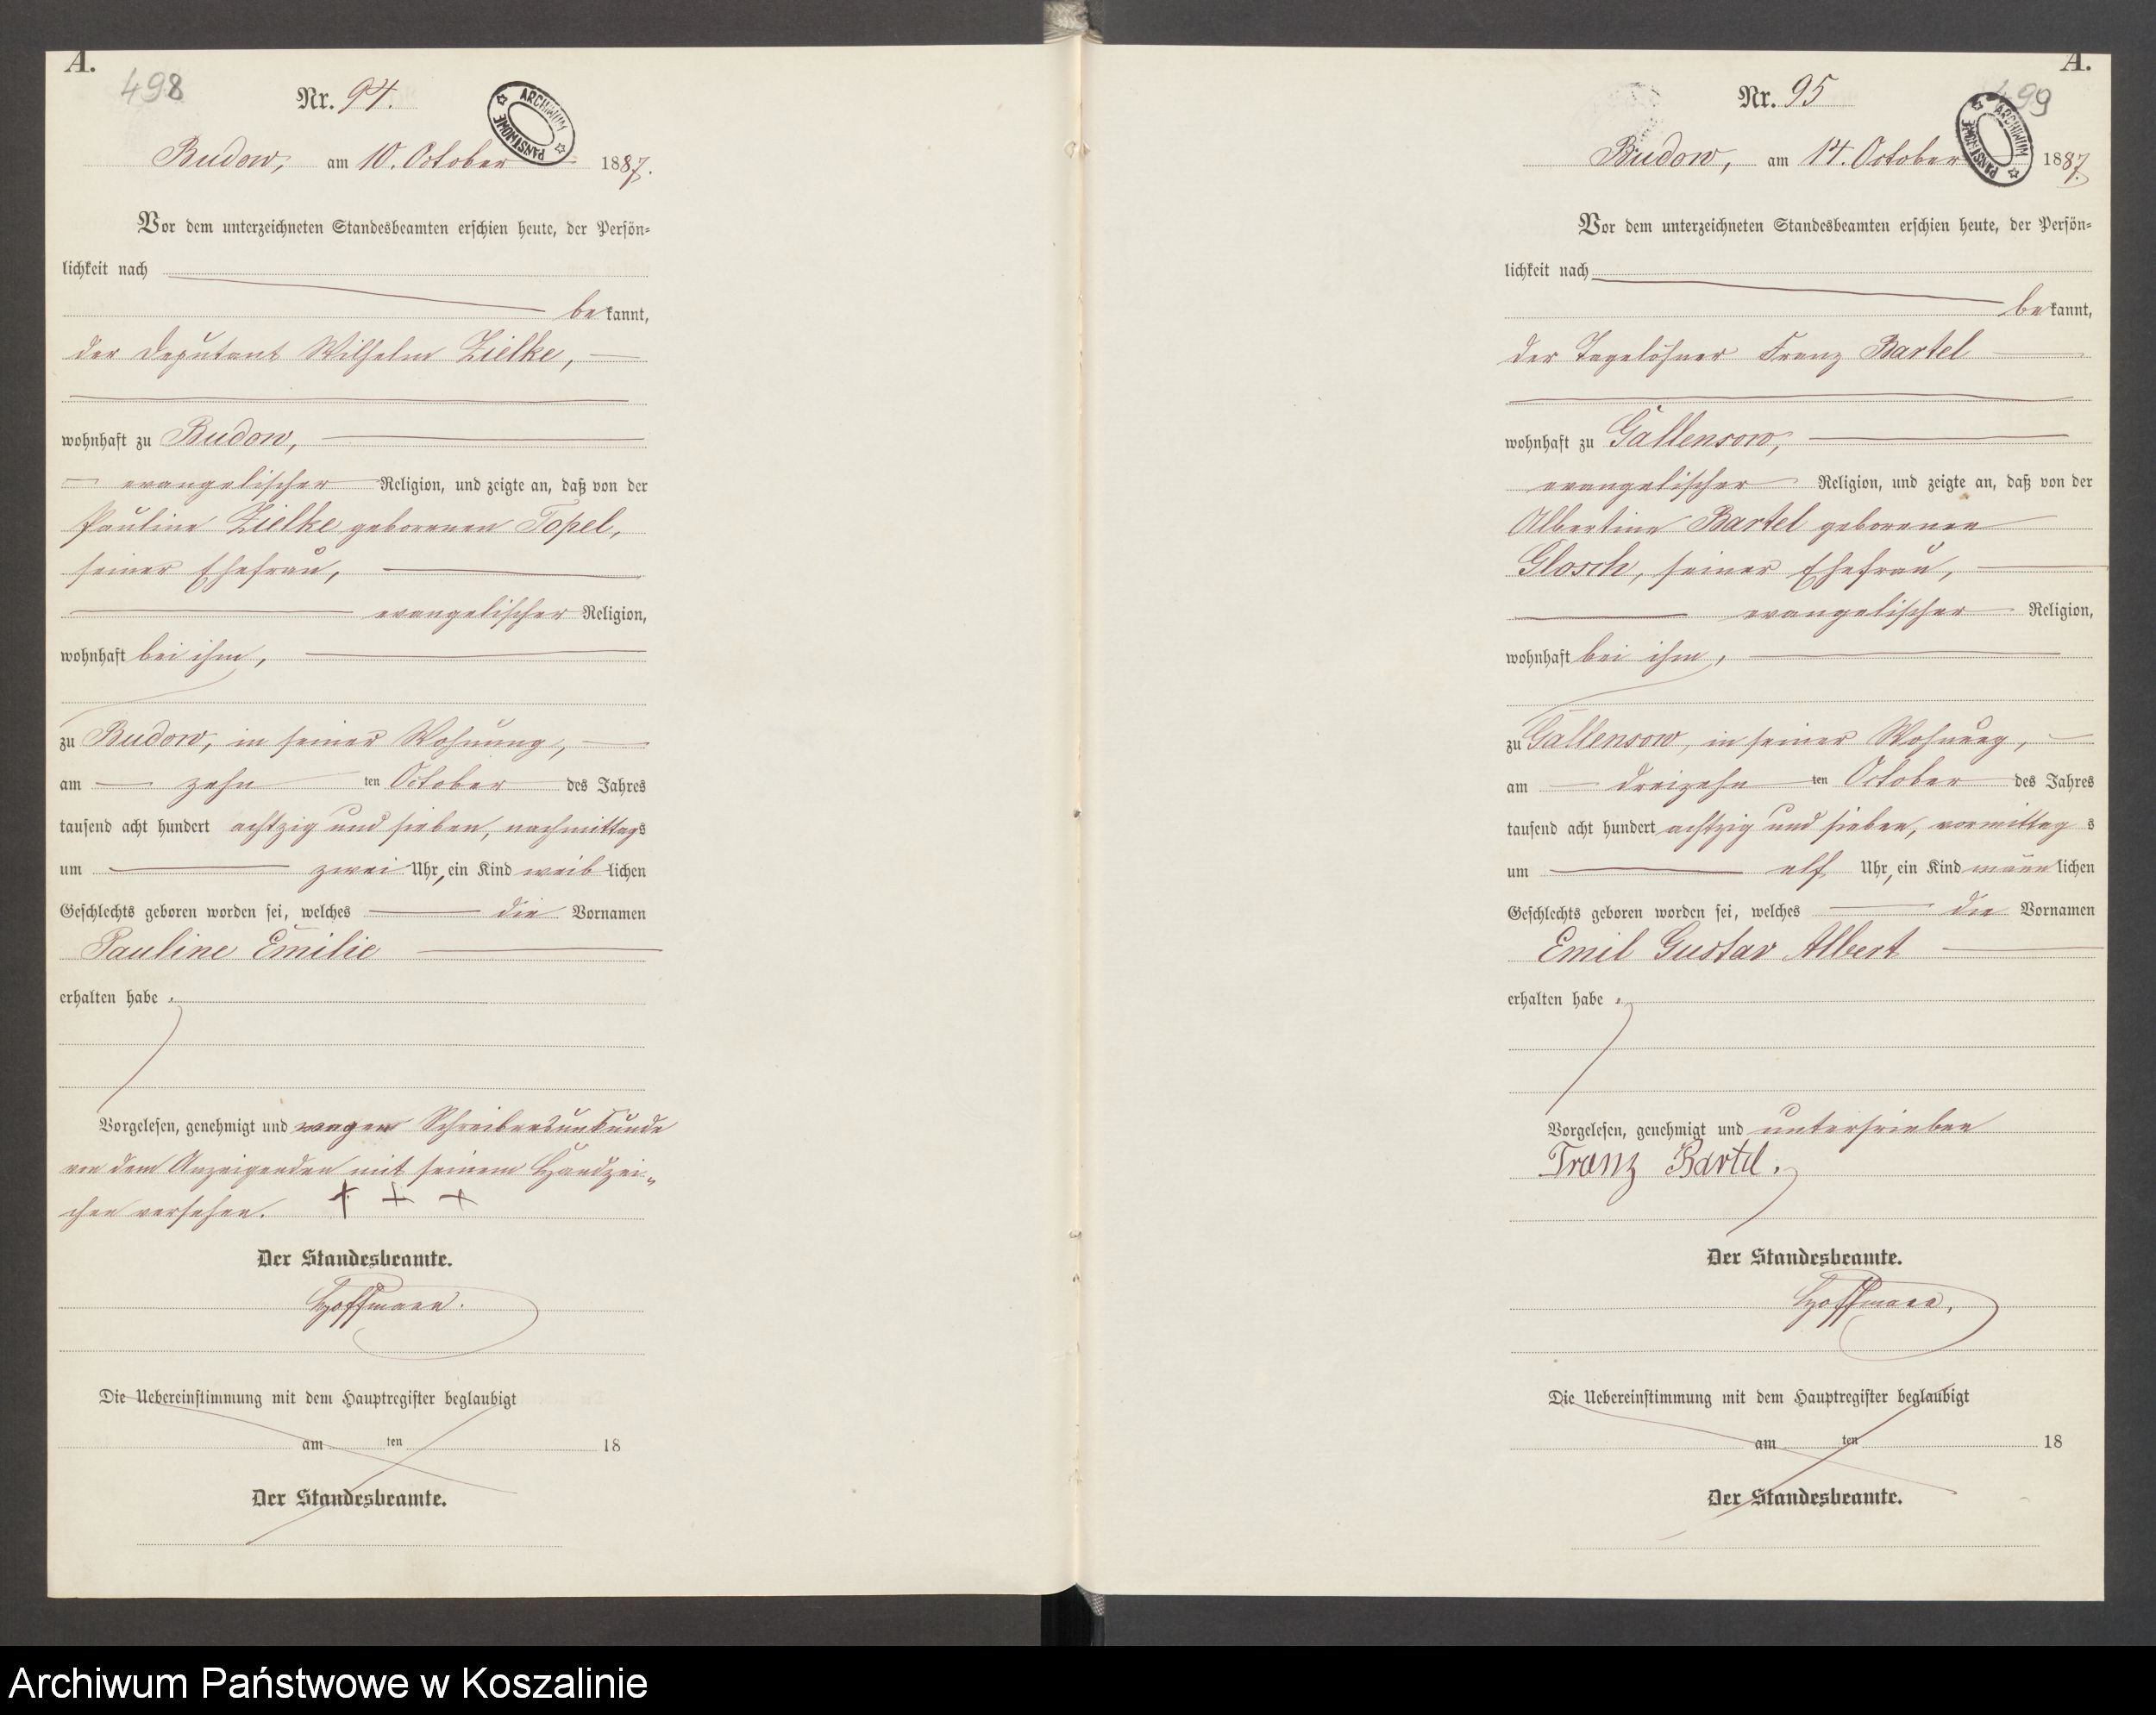 A.
498
Nr. 94.
ARCHIWUM PAŃSTWOWE
Budow, am 10. October 1887.
Vor dem unterzeichneten Standesbeamten erschien heute, der Persön-
lichkeit nach
bekannt,
der Deputant Wilhelm Zielke,
wohnhaft zu Budow,
evangelischer Religion, und zeigte an, daß von der
Pauline Zielke geborenen Topel,
seiner Ehefrau,
evangelischer Religion,
wohnhaft bei ihm,
zu Budow, in seiner Wohnung,
am zehn ten October des Jahres
tausend acht hundert achtzig und sieben, nachmittags
um zwei Uhr, ein Kind weiblichen
Geschlechts geboren worden sei, welches die Vornamen
Pauline Emilie
erhalten habe.
Vorgelesen, genehmigt und wegen Schreibensunkunde
von dem Anzeigenden mit seinem Handzei-
chen versehen. + + +
Der Standesbeamte.
Hoffmann.
Die Uebereinstimmung mit dem Hauptregister beglaubigt
am ten 18
Der Standesbeamte.
A.
499
Nr. 95
ARCHIWUM PAŃSTWOWE
Budow, am 14. October 1887.
Vor dem unterzeichneten Standesbeamten erschien heute, der Persön-
lichkeit nach
bekannt,
der Tagelöhner Franz Bartel
wohnhaft zu Gallensow,
evangelischer Religion, und zeigte an, daß von der
Albertine Bartel geborenen
Glosch, seiner Ehefrau,
evangelischer Religion,
wohnhaft bei ihm,
zu Gallensow, in seiner Wohnung,
am dreizehn ten October des Jahres
tausend acht hundert achtzig und sieben, vormittags
um elf Uhr, ein Kind männlichen
Geschlechts geboren worden sei, welches die Vornamen
Emil Gustav Albert
erhalten habe.
Vorgelesen, genehmigt und unterschrieben
Franz Bartel.
Der Standesbeamte.
Hoffmann.
Die Uebereinstimmung mit dem Hauptregister beglaubigt
am ten 18
Der Standesbeamte.
Archiwum Państwowe w Koszalinie